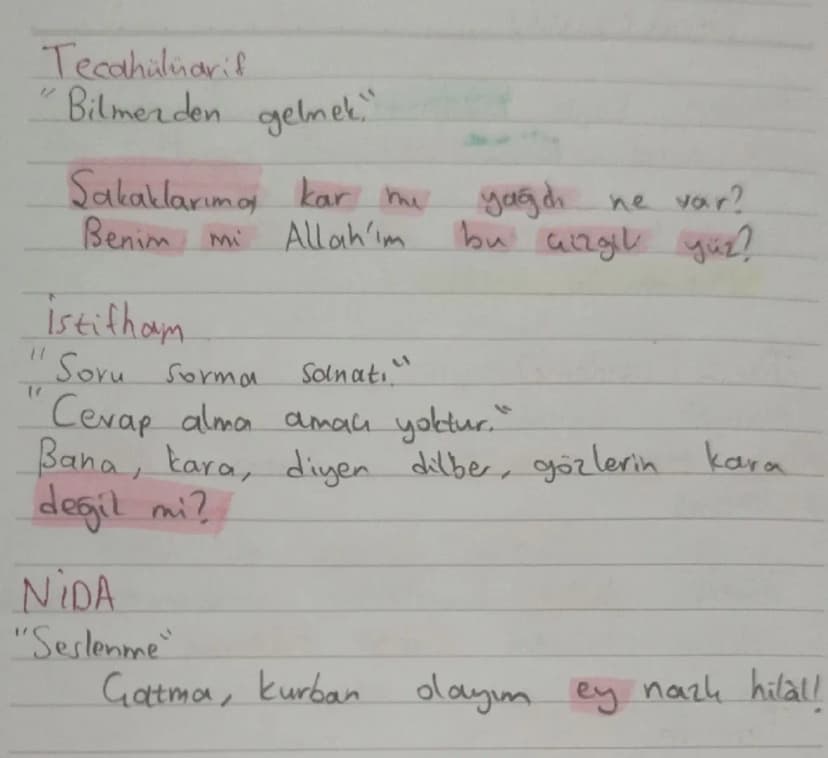 Tecahülüarif
"Bilmezden gelmek."
Şakaklarıma kar mı yağdı ne var?
Benim mi Allah'ım bu çizgili yüz?
İstifham
"Soru sorma sanatı."
"Cevap alma amacı yoktur."
Bana, kara, diyen dilber, gözlerin kara
değil mi?
NİDA
"Seslenme"
Çatma, kurban olayım ey nazlı hilâl!